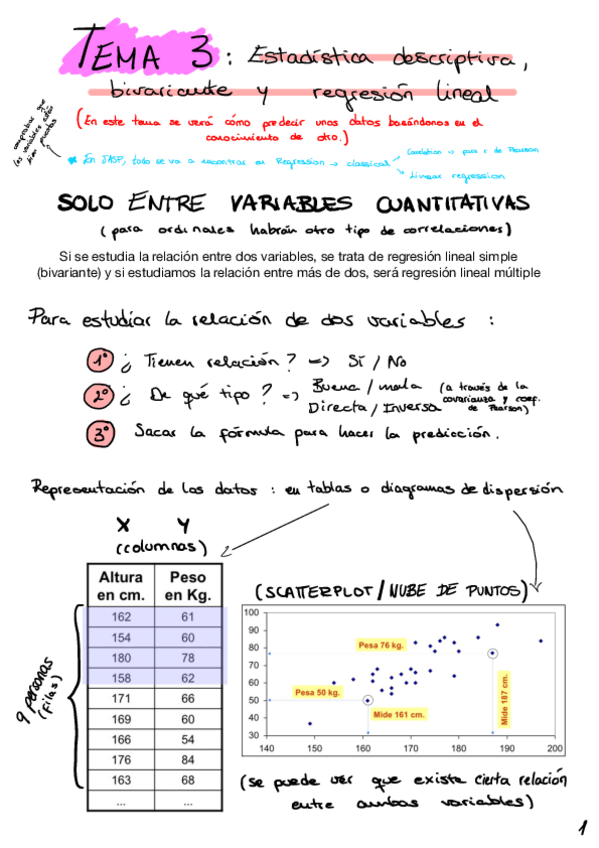 TEMA 3: Estadística descriptiva,
bivariante y regresión lineal
(En este tema se verá cómo predecir unos datos basándonos en el
conocimiento de otro.)
comprobar que
las variables estén
bien puestas
* En JASP, todo se va a encontrar en Regression → classical
Correlation → para r de Pearson
Linear regression
SOLO ENTRE VARIABLES CUANTITATIVAS
(para ordinales habrán otro tipo de correlaciones)
Si se estudia la relación entre dos variables, se trata de regresión lineal simple
(bivariante) y si estudiamos la relación entre más de dos, será regresión lineal múltiple
Para estudiar la relación de dos variables:
1º ¿Tienen relación? => Sí / No
2º ¿De qué tipo? => Buena / mala
Directa / Inversa
(a través de la
covarianza y coef.
de Pearson)
3º Sacar la fórmula para hacer la predicción.
Representación de los datos: en tablas o diagramas de dispersión
X Y
(columnas)
Altura en cm. Peso en Kg.
162 61
154 60
180 78
158 62
171 66
169 60
166 54
176 84
163 68
... ...
9 personas
(filas)
(SCATTERPLOT / NUBE DE PUNTOS)
100
90
80
70
60
50
40
30
140 150 160 170 180 190 200
Pesa 76 kg.
Pesa 50 kg.
Mide 161 cm.
Mide 187 cm.
(se puede ver que existe cierta relación
entre ambas variables)
1